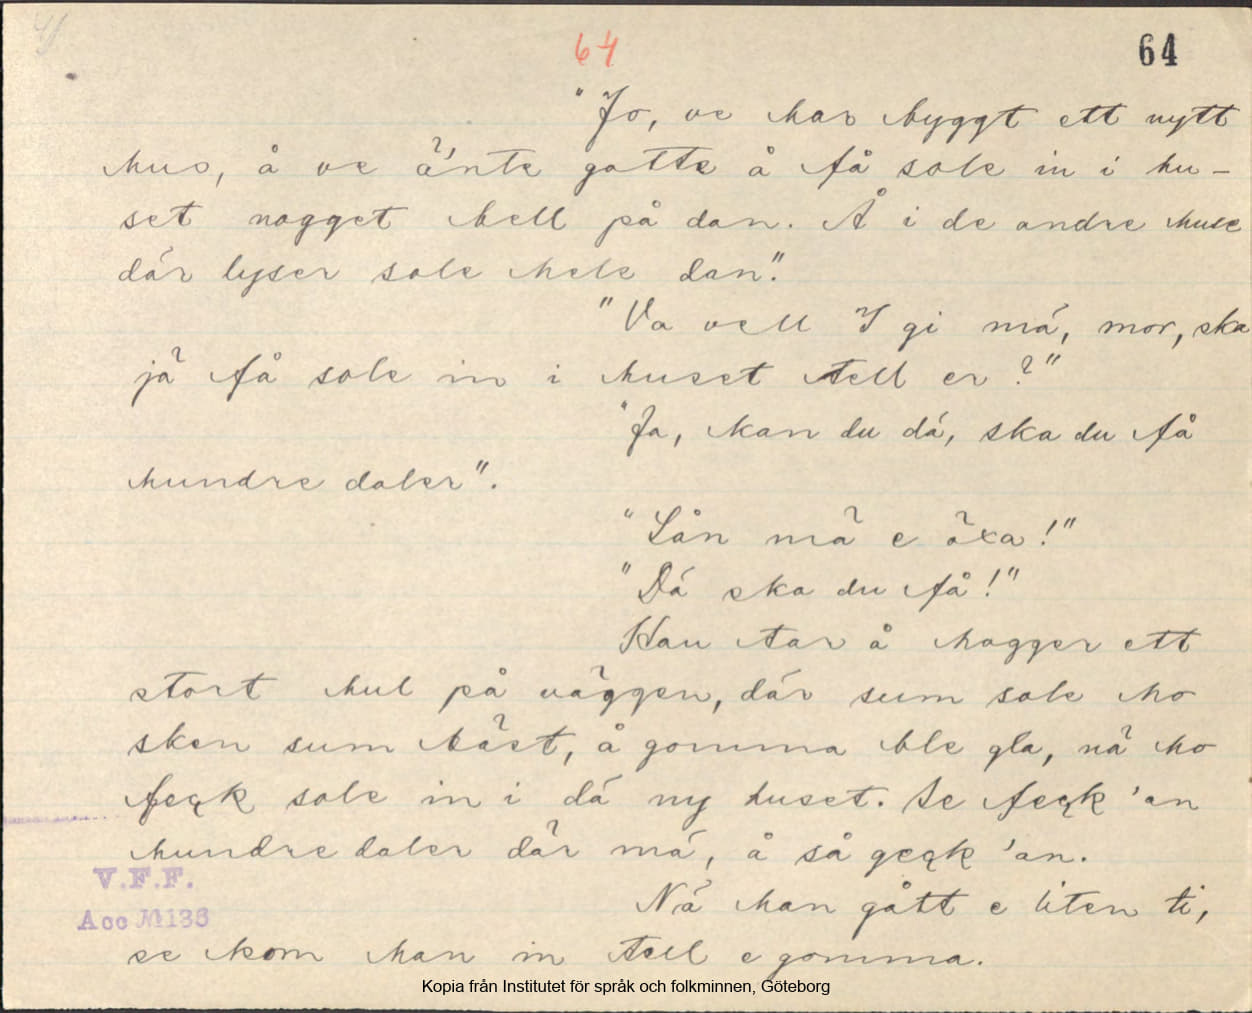 64 64
"Jo, ve har byggt ett nytt
hus, å ve änte gatte å få sole in i hu-
set nogget hell på dan. Å i de andre huse
där lyser sole hele dan".
"Va vell I gi má, mor, ska
jä få sole in i huset tell er?"
"Ja, kan du dá, ska du få
hundre daler".
"Lån mä e äxa!"
"Dá ska du få!"
Han tar å hogger ett
stort hul på väggen, där sum sole ho
sken sum bäst, å gomma ble gla, nä ho
feck sole in i dá ny huset. Se feck 'an
hundre daler där má, å så geck 'an.
Nä han gått e liten ti,
se kom han in tell e gomma.
V.F.F.
Acc № 136
Kopia från Institutet för språk och folkminnen, Göteborg